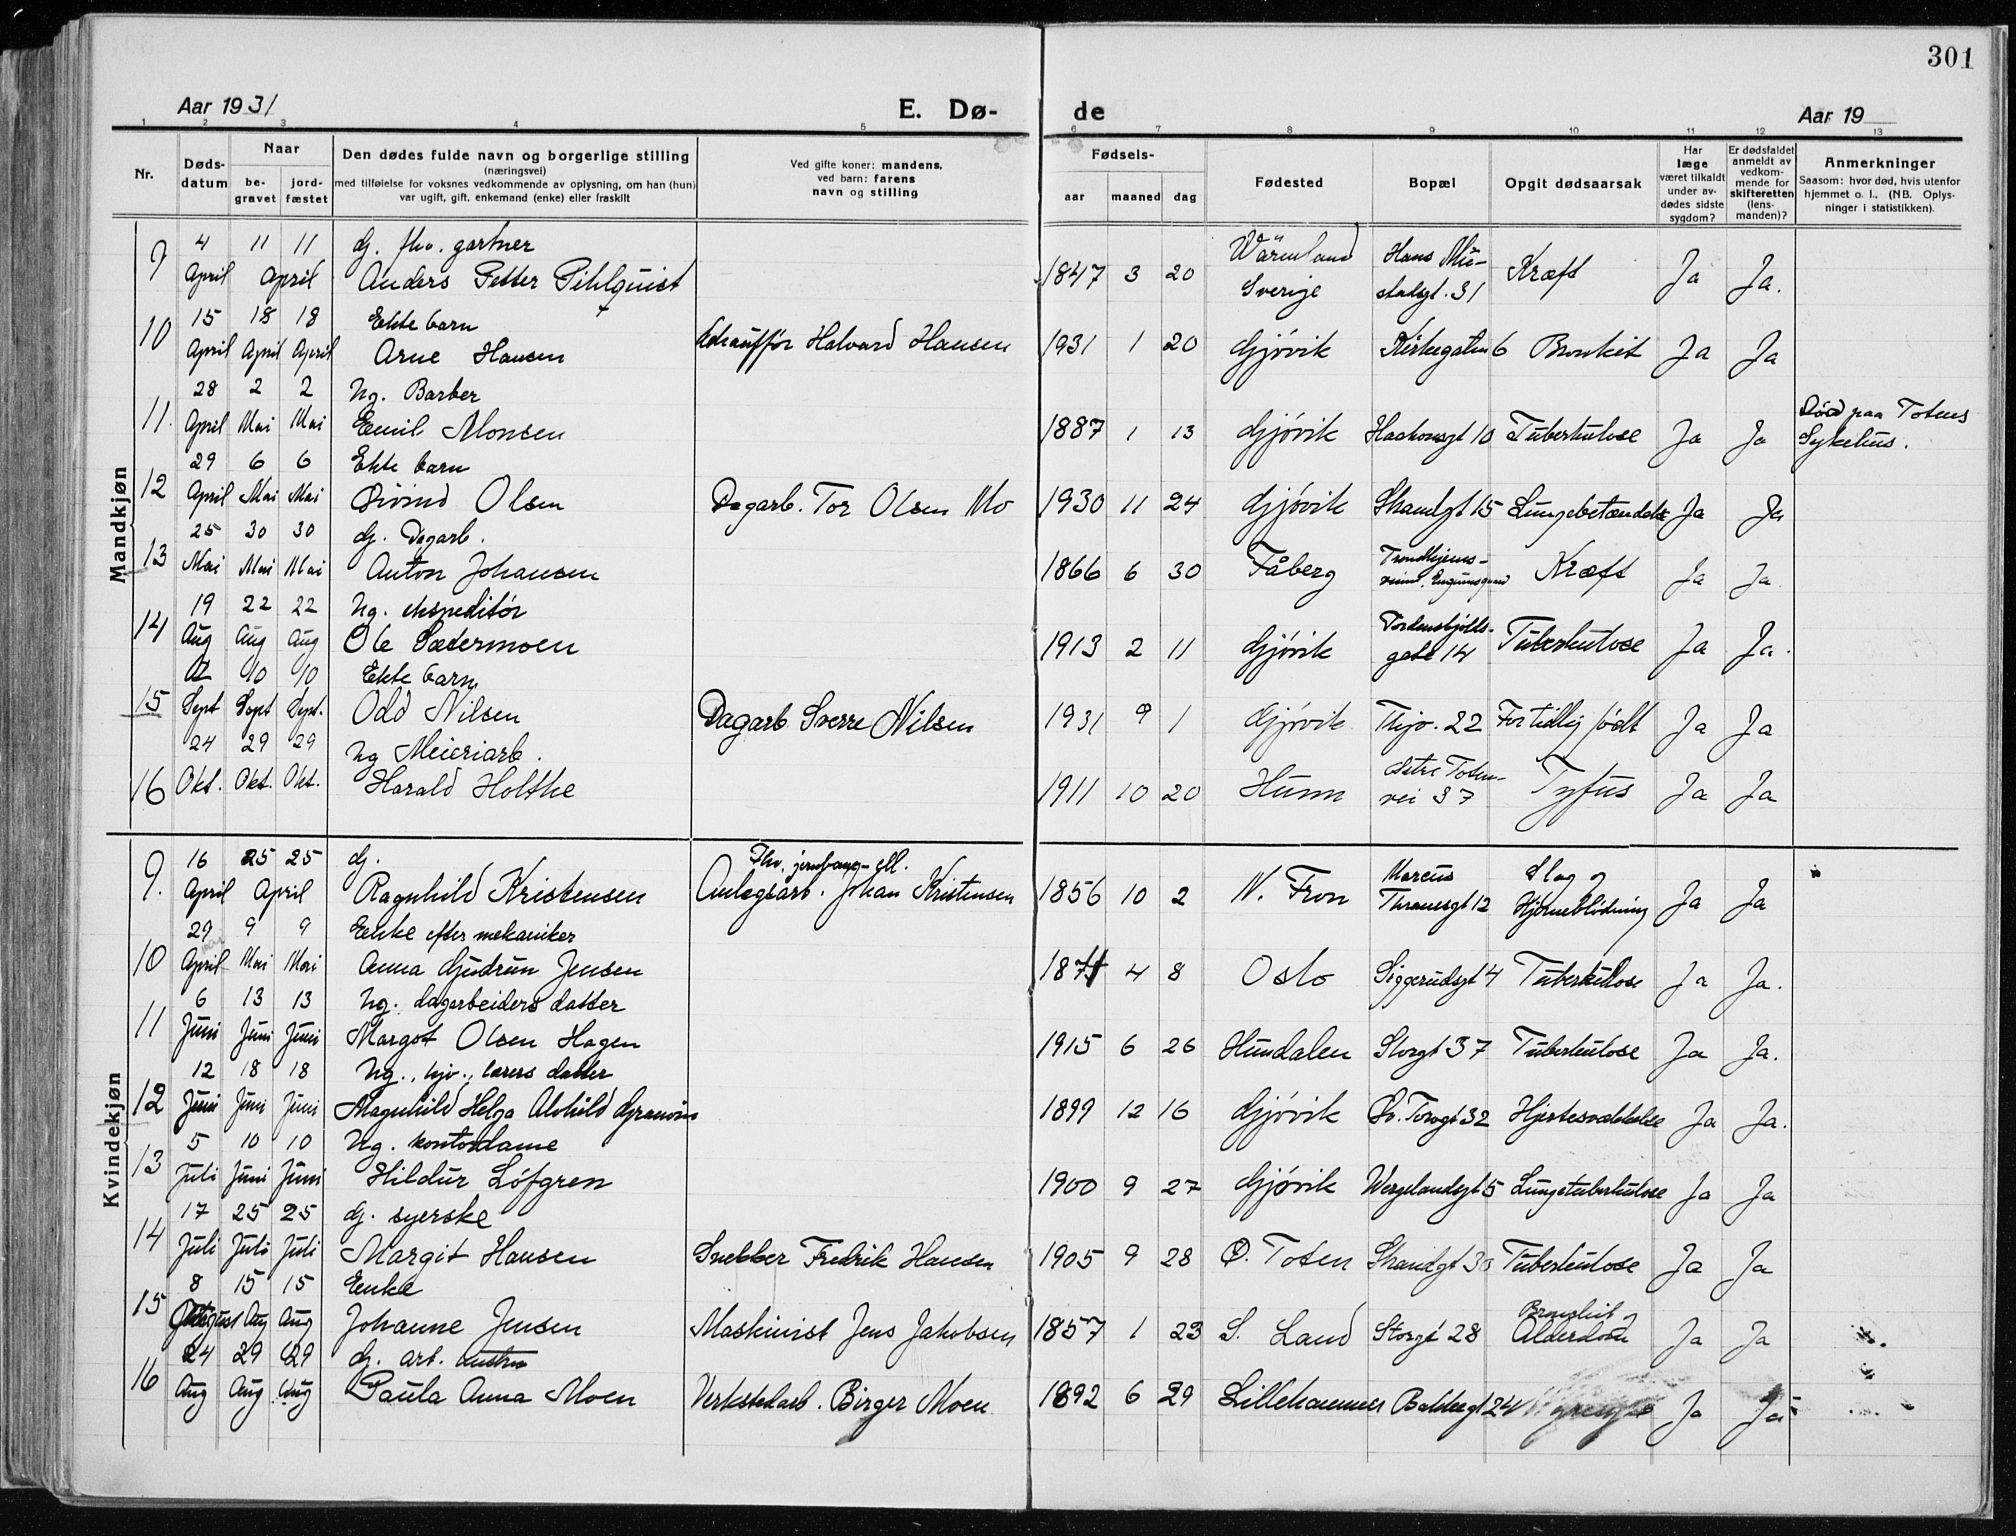 301
Aar 1931
E. Dø-
de
Aar 19
1 2 3 4 5 6 7 8 9 10 11 12 13
Nr.
Døds-
datum
Naar
be-
gravet
jord-
fæstet
Den dødes fulde navn og borgerlige stilling
(næringsvei)
med tilføielse for voksnes vedkommende av oplysning, om han (hun)
var ugift, gift, enkemand (enke) eller fraskilt
Ved gifte koner: mandens,
ved barn: farens
navn og stilling
Fødsels-
aar maaned dag
Fødested
Bopæl
Opgit dødsaarsak
Har
læge
været tilkaldt
under av-
dødes sidste
sygdom?
Er dødsfaldet
anmeldt av
vedkom-
mende for
skifteretten
(lens-
manden)?
Anmerkninger
Saasom: hvor død, hvis utenfor
hjemmet o. l., (NB. Oplys-
ninger i statistikken).
Mandkjøn
4 11 11 Gj. fhv. gartner Wärmland Hans Mu-
9 April April Anders Petter Pihlquist 1847 3 20 Sverige stadsgt. 31 Kræft Ja Ja.
15 18 18 Ekte barn
10 April April April Arne Hansen Chauffør Halvard Hansen 1931 1 20 Gjøvik Kirkegaten 6 Bronkit Ja Ja
28 2 2 Ug. Barber Død paa Totens
11. April Mai Mai Emil Monsen 1887 1 13 Gjøvik Haakonsgt 10 Tuberkulose Ja Ja Sykehus.
29 6 6 Ekte barn
12 April Mai Mai Øivind Olsen Dagarb. Tor Olsen Mo 1930 11 24 Gjøvik Strandgt 15 Lungebetændelse Ja Ja
25 30 30 Gj. Dagarb. Trondhjems-
13 Mai Mai Mai Anton Johansen 1866 6 30 Fåberg Kræft Ja Ja
19 22 22 Ug. ekspeditør Tordenskjolds-
14 Aug Aug Aug Ole Sætermoen 1913 2 11 Gjøvik gate 14 Tuberkulose Ja Ja.
2 10 10 Ekte barn
15 Sept Sept Sept. Odd Nilsen Dagarb Sverre Nilsen 1931 9 1 Gjøvik Thjo. 22 For tidlig født Ja Ja
24 29 29 Ug Meieriarb. Østre Toten-
16 Okt. Okt. Okt. Harald Holthe 1911 10 20 Hunn vei 37 Tyfus Ja Ja
Kvindekjøn
16 25 25 Gj. Fhv. jernbane- Marcus Slag og
9. April April Ragnhild Kristensen Anlegsarb. Johan Kristensen 1856 10 2 N. Fron Thranesgt 12 Hjerneblødning Ja Ja
29 9 9 Enke efter mekaniker
10 April Mai Mai Anna Gudrun Jensen 1871 4 8 Oslo Siggerudsgt 4 Tuberkulose Ja Ja.
6 13 13 Ug. dagarbeiders datter
11 Juni Juni Juni Margot Olsen Hagen 1915 6 26 Hundalen Storgt 37 Tuberkulose Ja Ja.
12 18 18 Ug., hjv., lærers datter
12 Juni Juni Juni Magnhild Helga Alvhild Granum 1899 12 16 Gjøvik Øv. Torvgt 32 Hjertesvækkelse Ja Ja.
5 10 10 Ug. kontordame
13 Juli Juni Juni Hildur Löfgren 1900 9 27 Gjøvik Wergelandsgt 5 Lungetuberkulose Ja Ja
17 25 25 Gj. syerske
14 Juli Juli Juli Margit Hansen Snekker Fredrik Hansen 1905 9 28 Ø. Toten Strandgt 30 Tuberkulose Ja Ja
8 15 15 Enke Bronchit og
15 August Aug Aug Johanne Jensen Maskinist Jens Jakobsen 1857 1 23 S. Land Storgt 28 Alderdom Ja Ja
24 29 29 Gj. arb. hustru
16 Aug Aug Aug Paula Anna Moen Verkstedarb. Birger Moen 1892 6 29 Lillehammer Bakkegt 24 Ja Ja